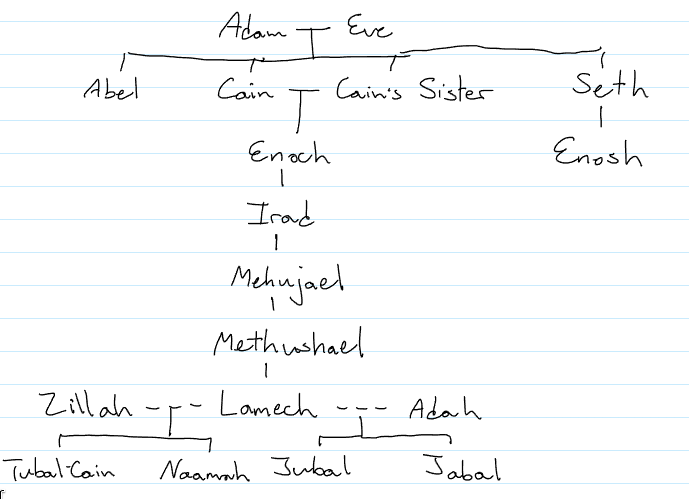 Adam Eve
Abel Cain Cain's Sister Seth
Enoch Enosh
Irad
Mehujael
Methushael
Zillah Lamech Adah
Tubal-Cain Naamah Jubal Jabal